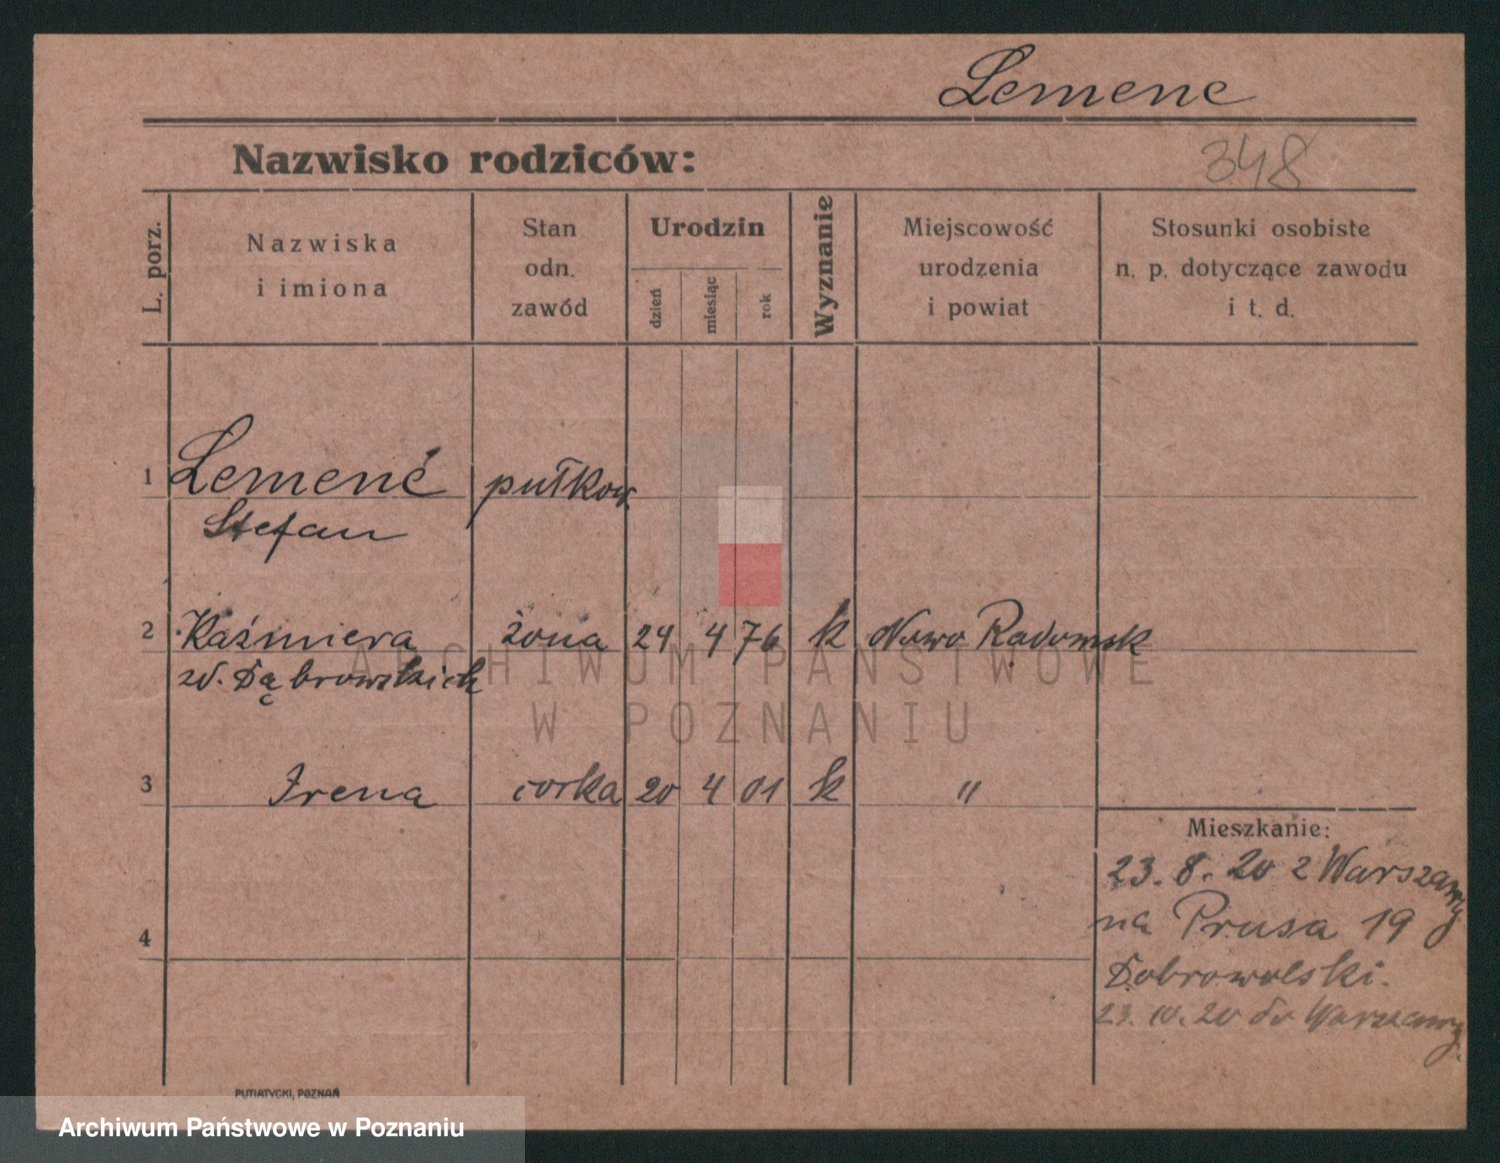 Lemene
Nazwisko rodziców:
348
L. porz.
Nazwiska
i imiona
Stan
odn.
zawód
Urodzin
dzień
miesiąc
rok
Wyznanie
Miejscowość
urodzenia
i powiat
Stosunki osobiste
n. p. dotyczące zawodu
i t. d.
1 Lemené pułkow.
Stefan
2 Kaźmiera żona 24 4 76 k Nowo Radomsk
zd. Dąbrowskich
3 Irena corka 20 4 01 k "
Mieszkanie:
23. 8. 20 z Warszawy
na Prusa 19
4
Dobrowolski.
23. 10. 20 do Warszawy.
PUTIATYCKI, POZNAŃ
ARCHIWUM PAŃSTWOWE
W POZNANIU
Archiwum Państwowe w Poznaniu